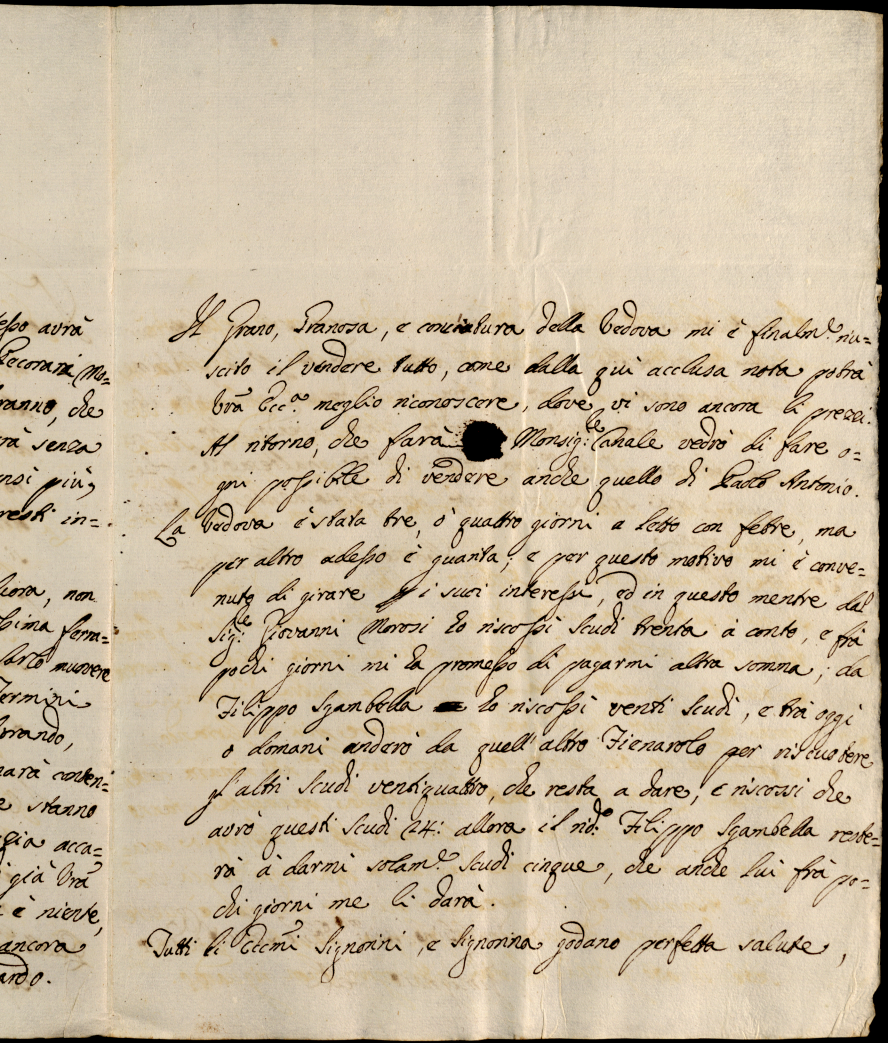 esso avrà
Pecorari Mo=
ranno, che
rà senza
nsi più,
resti in=.
uora, non
ssima ferra=
farlo muovere
Termini
rrando,
narà conten=
e stanno
gia acca=
i già Vrā
i è niente,
ancora
ardo.
Il Grano, Granosa, e conciatura della Vedova mi è finalm.e riu=
scito il vendere tutto, come dalla quì acclusa nota potrà
Vrā Ecc.a meglio riconoscere, dove vi sono ancora li prezzi.
Al ritorno, che farà Monsig.re Canale vedrò di fare o=
gni possibile di vendere anche quello di Paolo Antonio.
La Vedova è stata tre, ò quattro giorni a letto con febre, ma
per altro adesso è guarita; e per questo motivo mi è conve=
nuto di girare p i suoi interessi, ed in questo mentre dal
Sig.re Giovanni Morosi ho riscossi scudi trenta à conto, e frà
pochi giorni mi ha promesso di pagarmi altra somma; da
Filippo Sgambella ho riscossi venti scudi, e trà oggi
o domani anderò da quell'altro Fienarolo per riscuotere
gl'altri scudi ventiquattro, che resta a dare; e riscossi che
avrò questi scudi 24: allora il nd.o Filippo Sgambella reste=
rà à darmi solam.e scudi cinque, che anche lui frà po=
chi giorni me li darà.
Tutti li Eccmi Signorini, e Signorina godano perfetta salute,